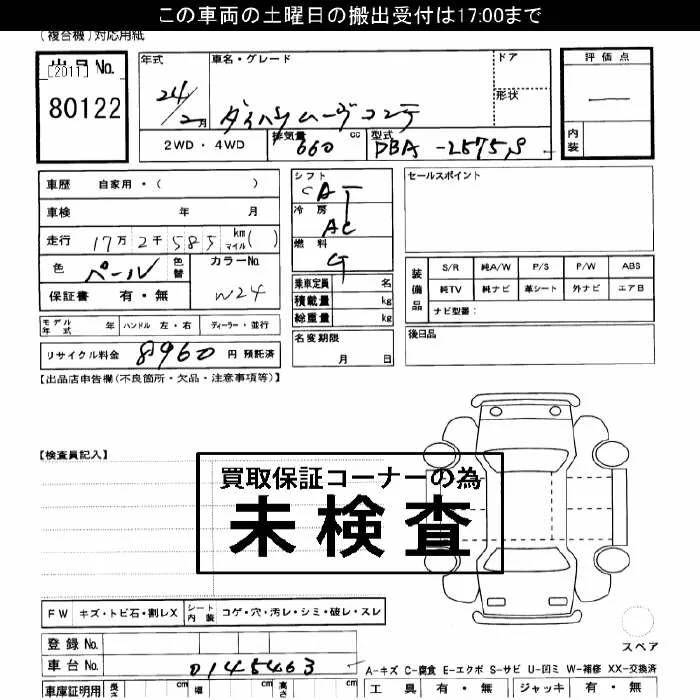 この車両の土曜日の搬出受付は17:00まで
(複合機)対応用紙
出品No. [2011] 80122
年式 24/2月
車名・グレード ダイハツムーヴコンテ
ドア
形状
評価点
内装
2WD・4WD 排気量 660 cc 型式 DBA-L575S
車歴 自家用・( )
車検 年 月
走行 17万2千585 km マイル( )
色 パール 色替 カラーNo. W24
保証書 有・無
シフト CAT
冷房 AC
燃料 G
乗車定員 名
積載量 kg
総重量 kg
セールスポイント
装備品 S/R 純A/W P/S P/W ABS
純TV 純ナビ 革シート 外ナビ エアB
ナビ型番:
モデル年式 年 ハンドル 左・右 ディーラー・並行
名変期限 月 日
後日品
リサイクル料金 8960 円 預託済
【出品店申告欄(不良箇所・欠品・注意事項等)】
【検査員記入】
買取保証コーナーの為
未検査
FW キズ・トビ石・割レX シート内装 コゲ・穴・汚レ・シミ・破レ・スレ
スペア
登録No.
車台No. 0145463
A-キズ C-腐食 E-エクボ S-サビ U-凹ミ W-補修 XX-交換済
車庫証明用 長さ cm 幅 cm 高さ cm 工具 有・無 ジャッキ 有・無